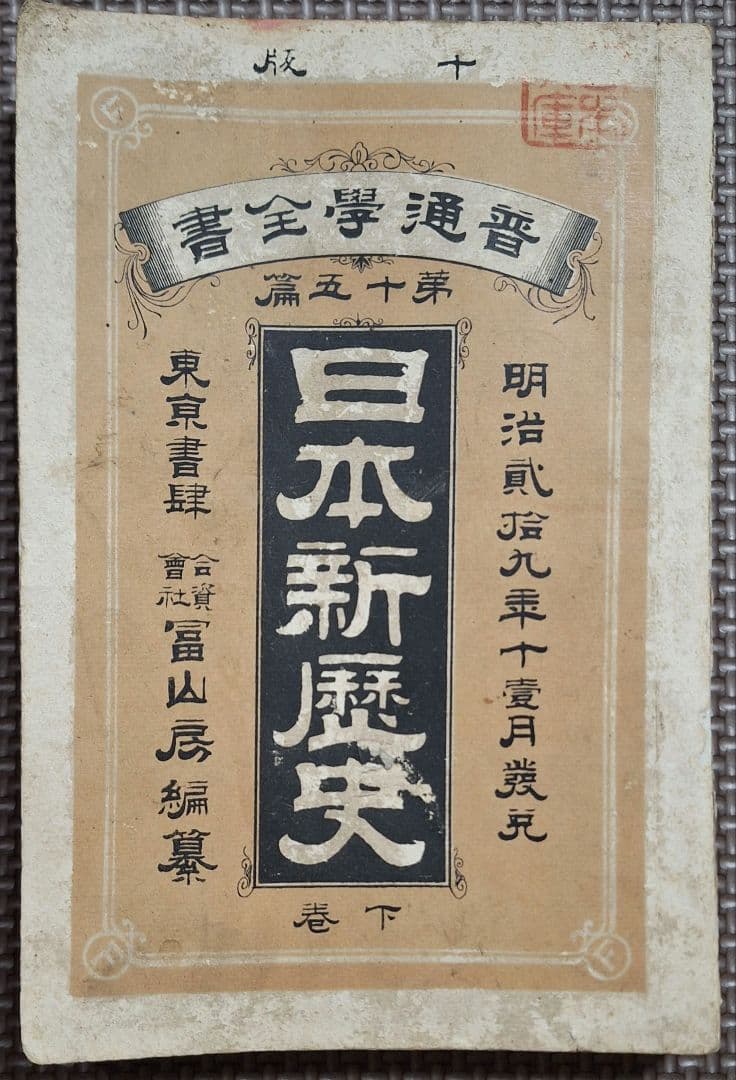 十版
普通學全書
第十五篇
明治貳拾九年十壹月發兌
日本新歷史
下卷
東京書肆
合資會社冨山房編纂